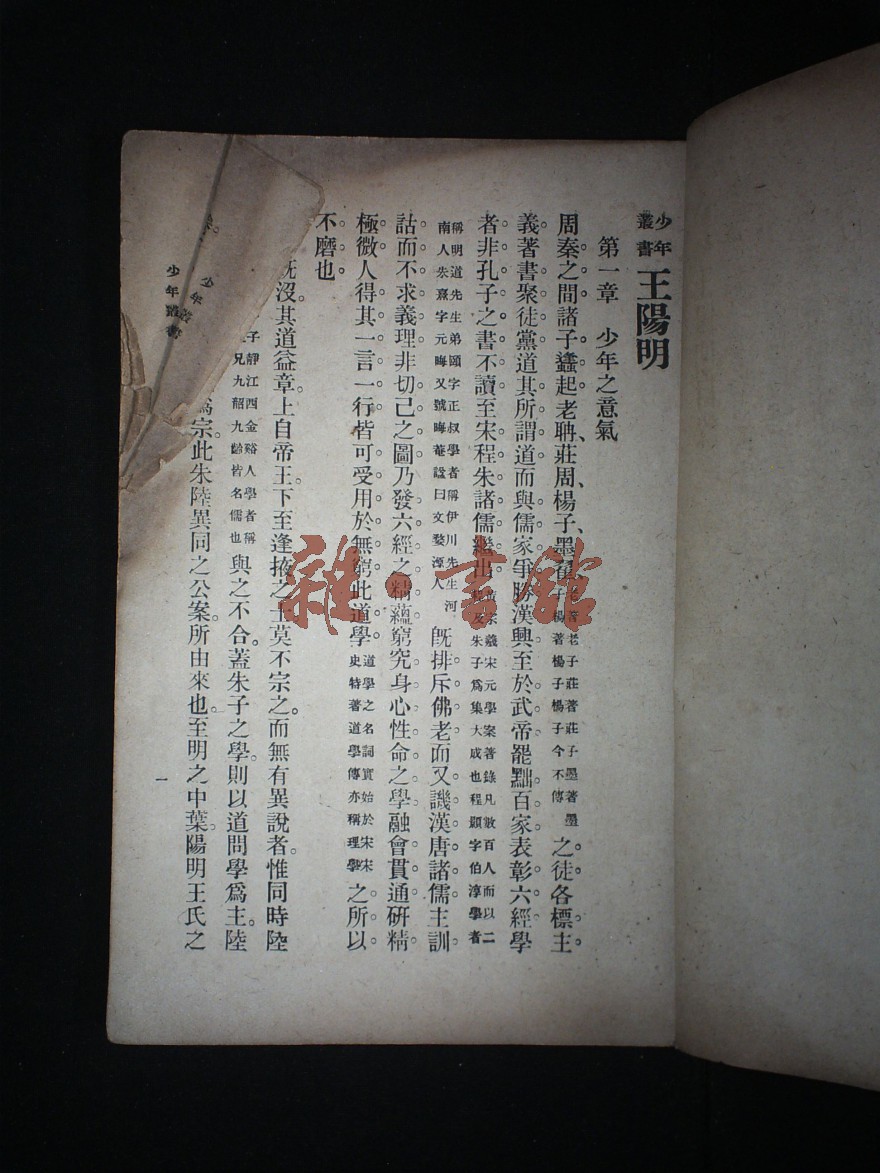 少年叢書 王陽明
第一章 少年之意氣
周秦之間諸子蠭起老聃、莊周、楊子、墨翟、老著老子莊著莊子墨著墨子楊著楊子楊子今不傳之徒各標主
義著書聚徒黨道其所謂道而與儒家爭勝漢興至於武帝罷黜百家表彰六經學
者非孔子之書不讀至宋程朱諸儒繼出黃宗羲宋元學案著錄凡數百人而以二程及朱子爲集大成也程顥字伯淳學者
稱明道先生弟頤字正叔學者稱伊川先生河南人朱熹字元晦又號晦菴諡曰文婺源人旣排斥佛老而又譏漢唐諸儒主訓
詁而不求義理非切己之圖乃發六經之精蘊窮究身心性命之學融會貫通硏精
極微人得其一言一行皆可受用於無窮此道學道學之名詞實始於宋宋史特著道學傳亦稱理學之所以
不磨也
旣沒其道益章。上自帝王。下至逢掖之士莫不宗之。而無有異說者。惟同時陸
子靜江西金谿人學者稱兄九韶九齡皆名儒也與之不合。蓋朱子之學。則以道問學爲主。陸
爲宗。此朱陸異同之公案。所由來也。至明之中葉。陽明王氏之
少年叢書
少年叢書
一
雜·書館